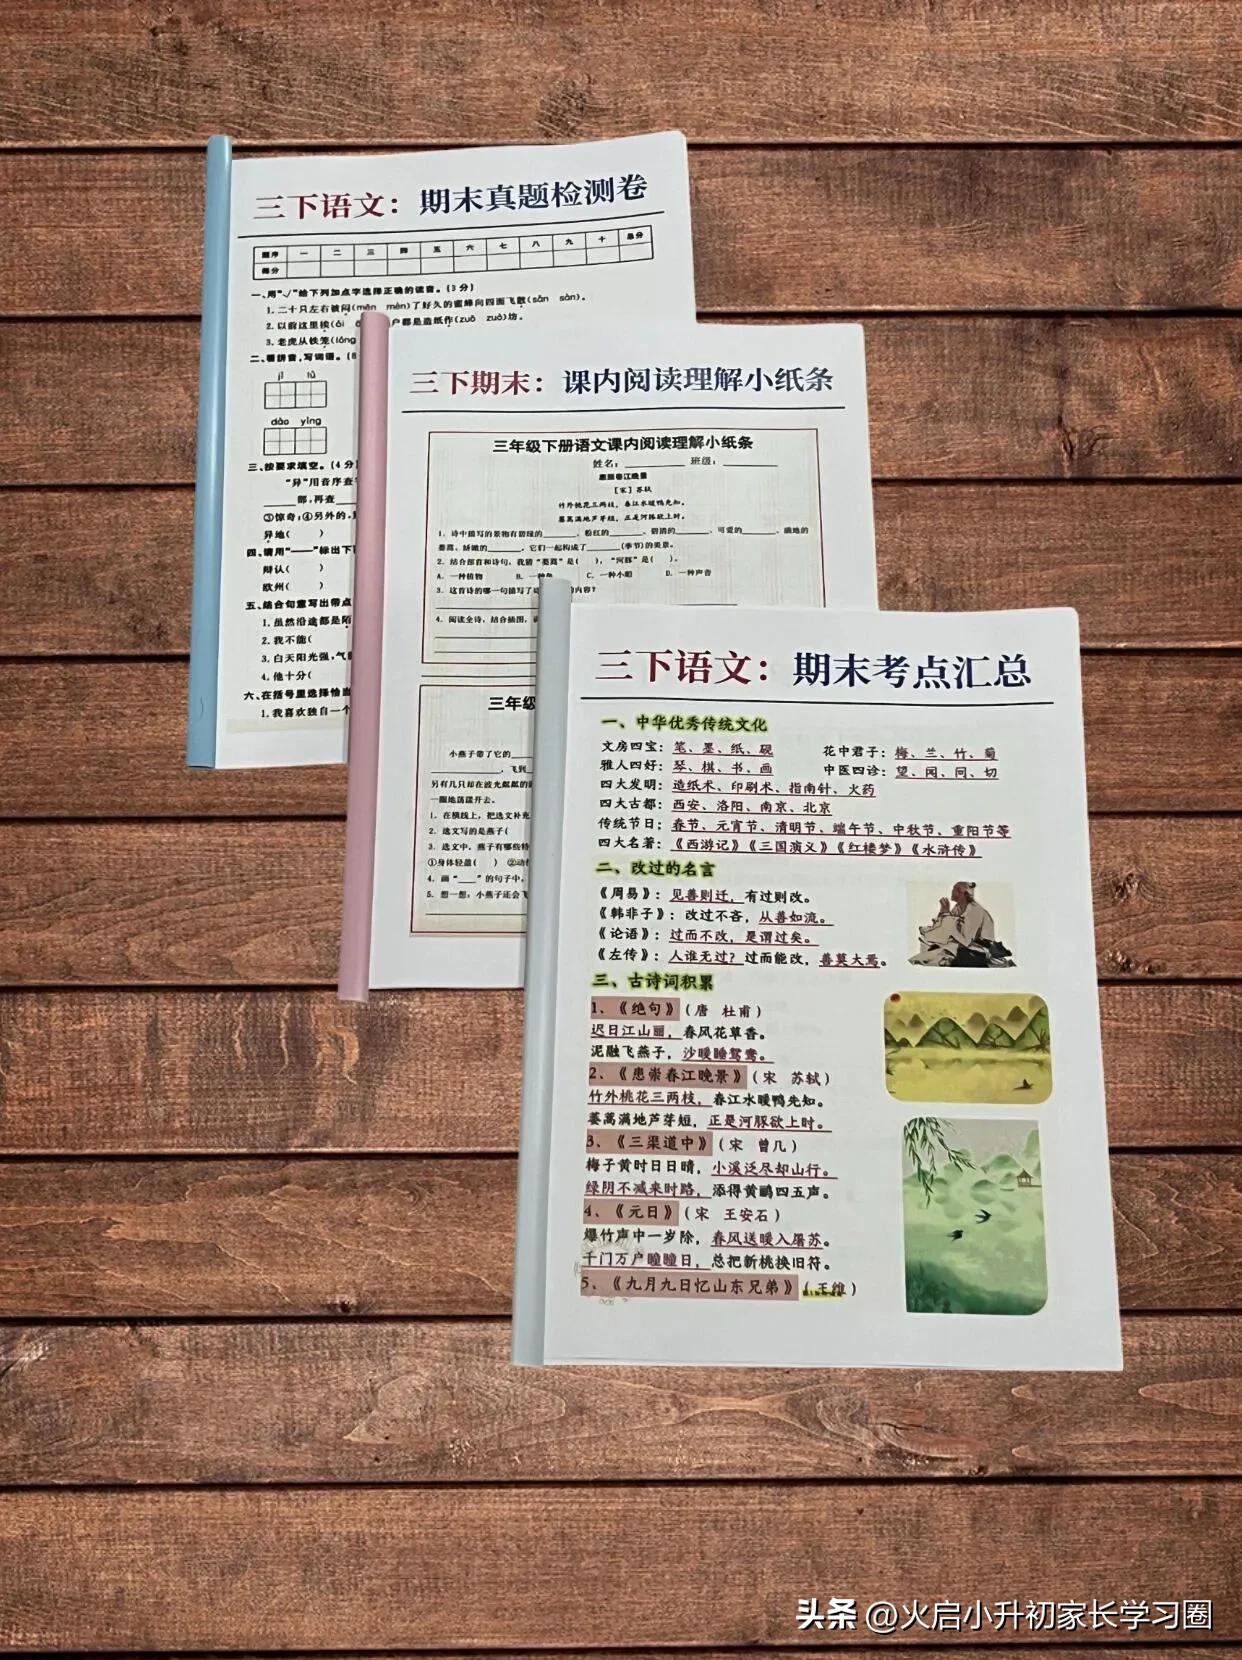 三下语文：期末真题检测卷
题序 一 二 三 四 五 六 七 八 九 十 总分
得分
一、用“√”给下列加点字选择正确的读音。(3分)
1. 二十只左右被闷(mēn mèn)了好久的蜜蜂向四面飞散(sǎn sàn)。
2. 以前这里挨(āi
户都是造纸作(zuō zuò)坊。
3. 老虎从铁笼(lóng
二、看拼音，写词语。(8
jī lǜ
dào yìng
三、按要求填空。(4分)
“异”用音序查
部，再查
③惊奇；④另外的，
异地( )
四、请用“——”标出下
辩认( )
欧州( )
五、结合句意写出带点
1. 虽然沿途都是陌
2. 我不能(
3. 白天阳光强，气
4. 他十分(
六、在括号里选择恰当
1. 我喜欢独自一个
三下期末：课内阅读理解小纸条
三年级下册语文课内阅读理解小纸条
姓名：________ 班级：________
惠崇春江晚景
[宋] 苏轼
竹外桃花三两枝，春江水暖鸭先知。
蒌蒿满地芦芽短，正是河豚欲上时。
1. 诗中描写的景物有碧绿的______、粉红的______、碧清的______、可爱的______、满地的
蒌蒿、娇嫩的______，它们一起构成了______(季节)的美景。
2. 结合部首和诗句，我猜“蒌蒿”是( )，“河豚”是( )。
A. 一种植物 B. 一种鱼 C. 一种小船 D. 一种声音
3. 这首诗的哪一句描写了
的内容？
4. 阅读全诗，结合插图，
三年级
小燕子带了它的
，飞到
另有几只却在波光粼粼的
一圈地荡漾开去。
1. 在横线上，把选文补充
2. 选文写的是燕子(
3. 选文中，燕子有哪些特
①身体轻盈( ) ②动
4. 画“____”的句子中，
5. 想一想：小燕子还会飞
三下语文：期末考点汇总
一、中华优秀传统文化
文房四宝：笔、墨、纸、砚 花中君子：梅、兰、竹、菊
雅人四好：琴、棋、书、画 中医四诊：望、闻、问、切
四大发明：造纸术、印刷术、指南针、火药
四大古都：西安、洛阳、南京、北京
传统节日：春节、元宵节、清明节、端午节、中秋节、重阳节等
四大名著：《西游记》《三国演义》《红楼梦》《水浒传》
二、改过的名言
《周易》：见善则迁，有过则改。
《韩非子》：改过不吝，从善如流。
《论语》：过而不改，是谓过矣。
《左传》：人谁无过？过而能改，善莫大焉。
三、古诗词积累
1、《绝句》(唐 杜甫)
迟日江山丽，春风花草香。
泥融飞燕子，沙暖睡鸳鸯。
2、《惠崇春江晚景》(宋 苏轼)
竹外桃花三两枝，春江水暖鸭先知。
蒌蒿满地芦芽短，正是河豚欲上时。
3、《三衢道中》(宋 曾几)
梅子黄时日日晴，小溪泛尽却山行。
绿阴不减来时路，添得黄鹂四五声。
4、《元日》(宋 王安石)
爆竹声中一岁除，春风送暖入屠苏。
千门万户曈曈日，总把新桃换旧符。
5、《九月九日忆山东兄弟》(王维)
头条 @火启小升初家长学习圈